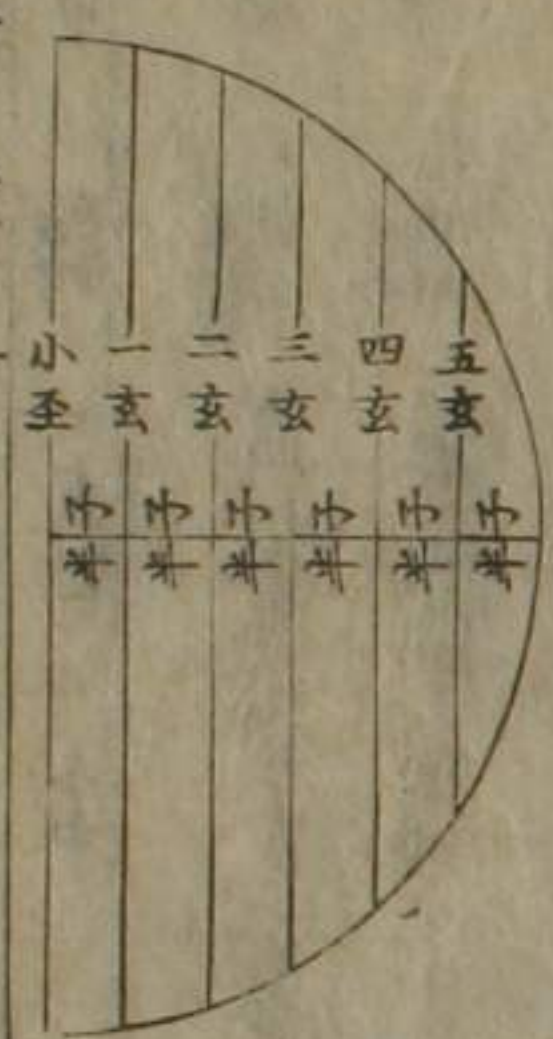 五玄
四玄
三玄
二玄
一玄
小至
子半
子半
子半
子半
子半
子半